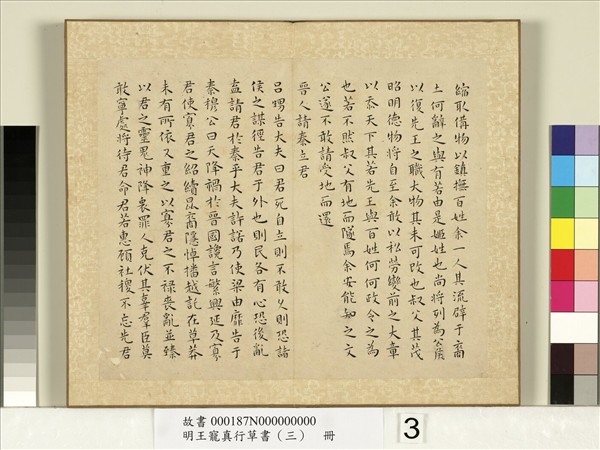 縮取備物以鎮撫百姓余一人其流辟于裔
土何辭之與有若由是姬姓也尚將列為公侯
以復先王之職大物其未可改也叔父其茂
昭明德物將自至余敢以私勞變前之大章
以忝天下其若先王與百姓何何政令之為
也若不然叔父有地而隧焉余安能知之文
公遂不敢請受地而還
晉人請秦立君
呂甥告大夫曰君死自立則不敢久則恐諸
侯之謀徑告君于外也則民各有心恐後亂
盍請君於秦乎大夫許諾乃使梁由靡告于
秦穆公曰天降禍於晉國讒言繁興延及寡
君使寡君之紹續昆裔隱悼播越託在草莽
未有所依又重之以寡君之不祿喪亂並臻
以君之靈鬼神降衷罪人克伏其辜羣臣莫
敢寧處將待君命君若惠顧社稷不忘先君
故書 000187N000000000
明王寵真行草書（三） 冊
3